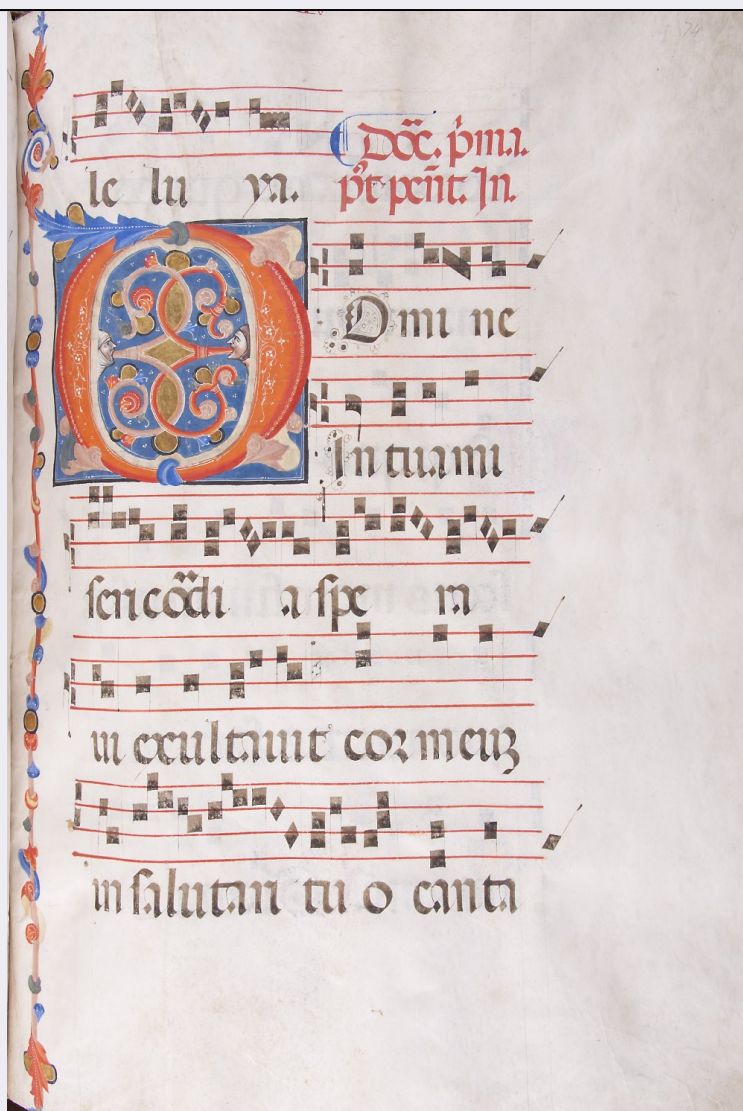 le lu ya.
Doc. p̄ma.
p̄t pent̄. In.
Domi ne
In tua mi
sericordi a spe ra
ui exultauit cor meuʒ
in salutari tu o canta